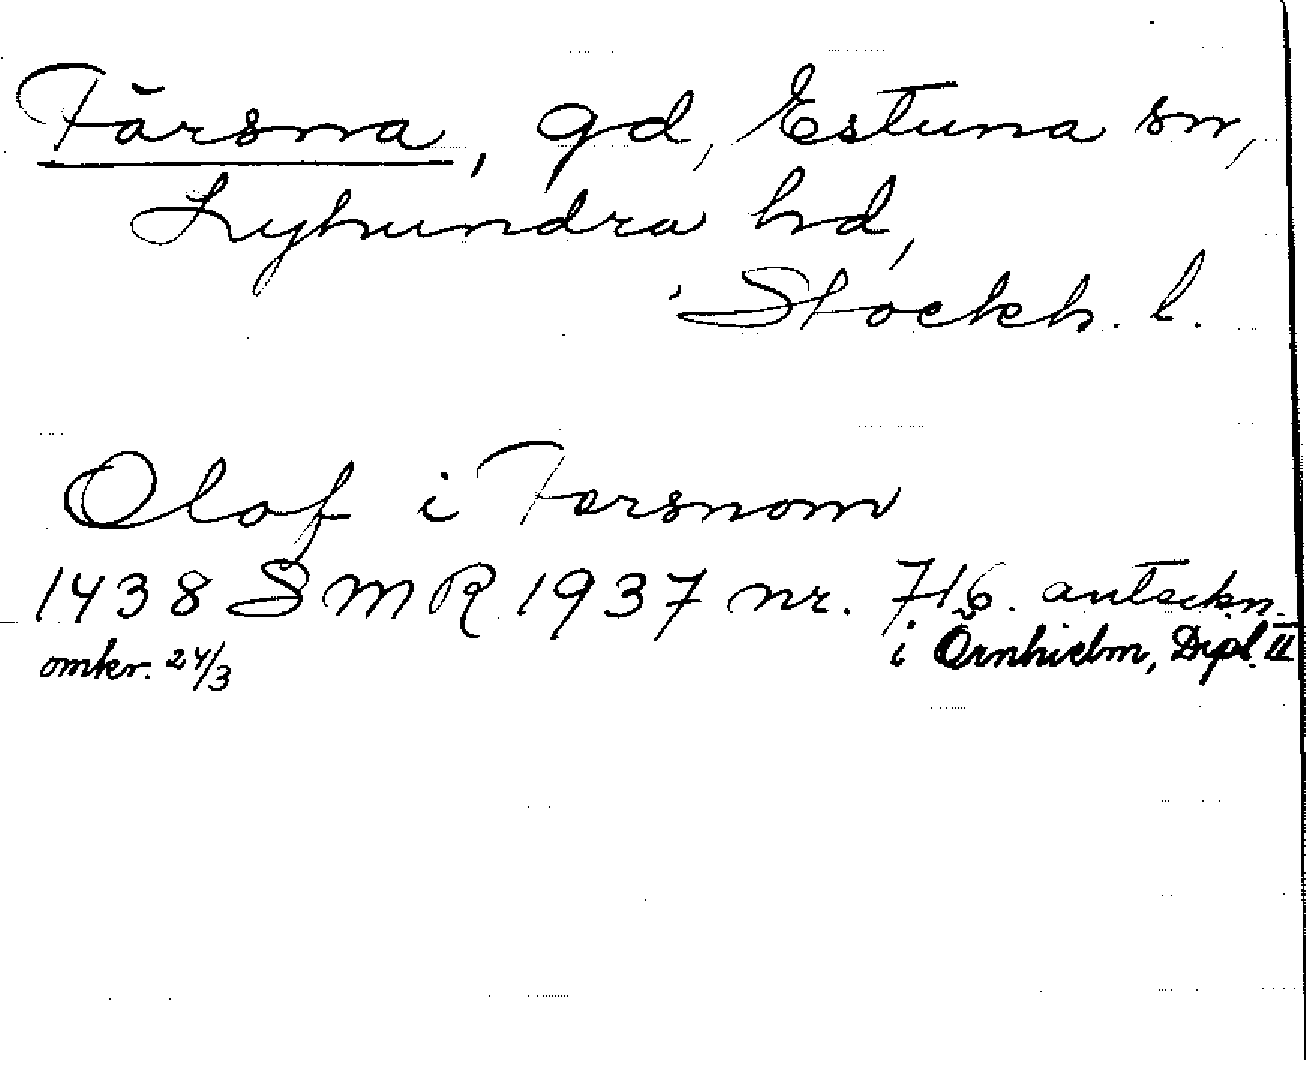 Färsna, gd, Estuna sn,
Lyhundra hd,
Stockh. l.
Olof i Forsnom
1438 SMR 1937 nr. 716. anteckn.
omkr. 24/3 i Örnhielm, Dipl. II